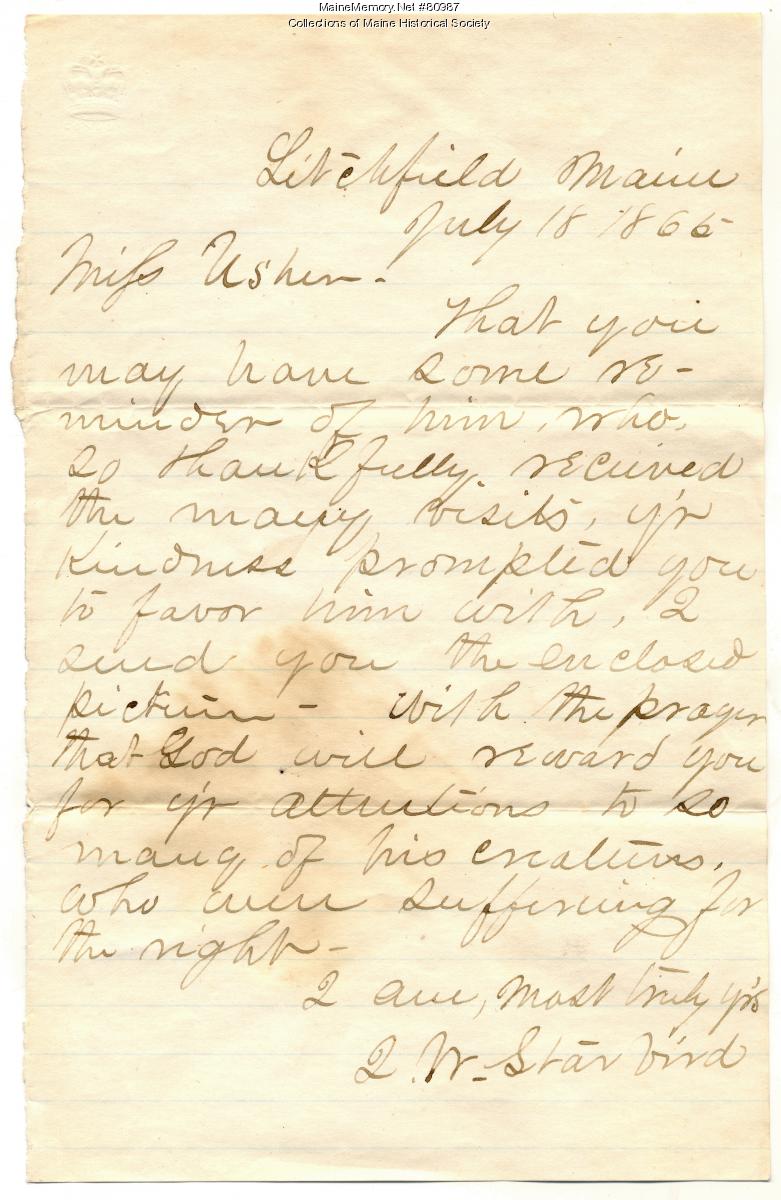 MaineMemory.Net #80987
Collections of Maine Historical Society
Litchfield Maine
July 18 1865
Miss Usher -
That you
may have some re-
minder of him, who,
so thankfully received
the many visits, y'r
kindness prompted you
to favor him with, I
send you the enclosed
picture - with the prayer
that God will reward you
for y'r attentions to so
many of his creatures,
who were suffering for
the right -
I am, most truly y'rs
I. W. Starbird